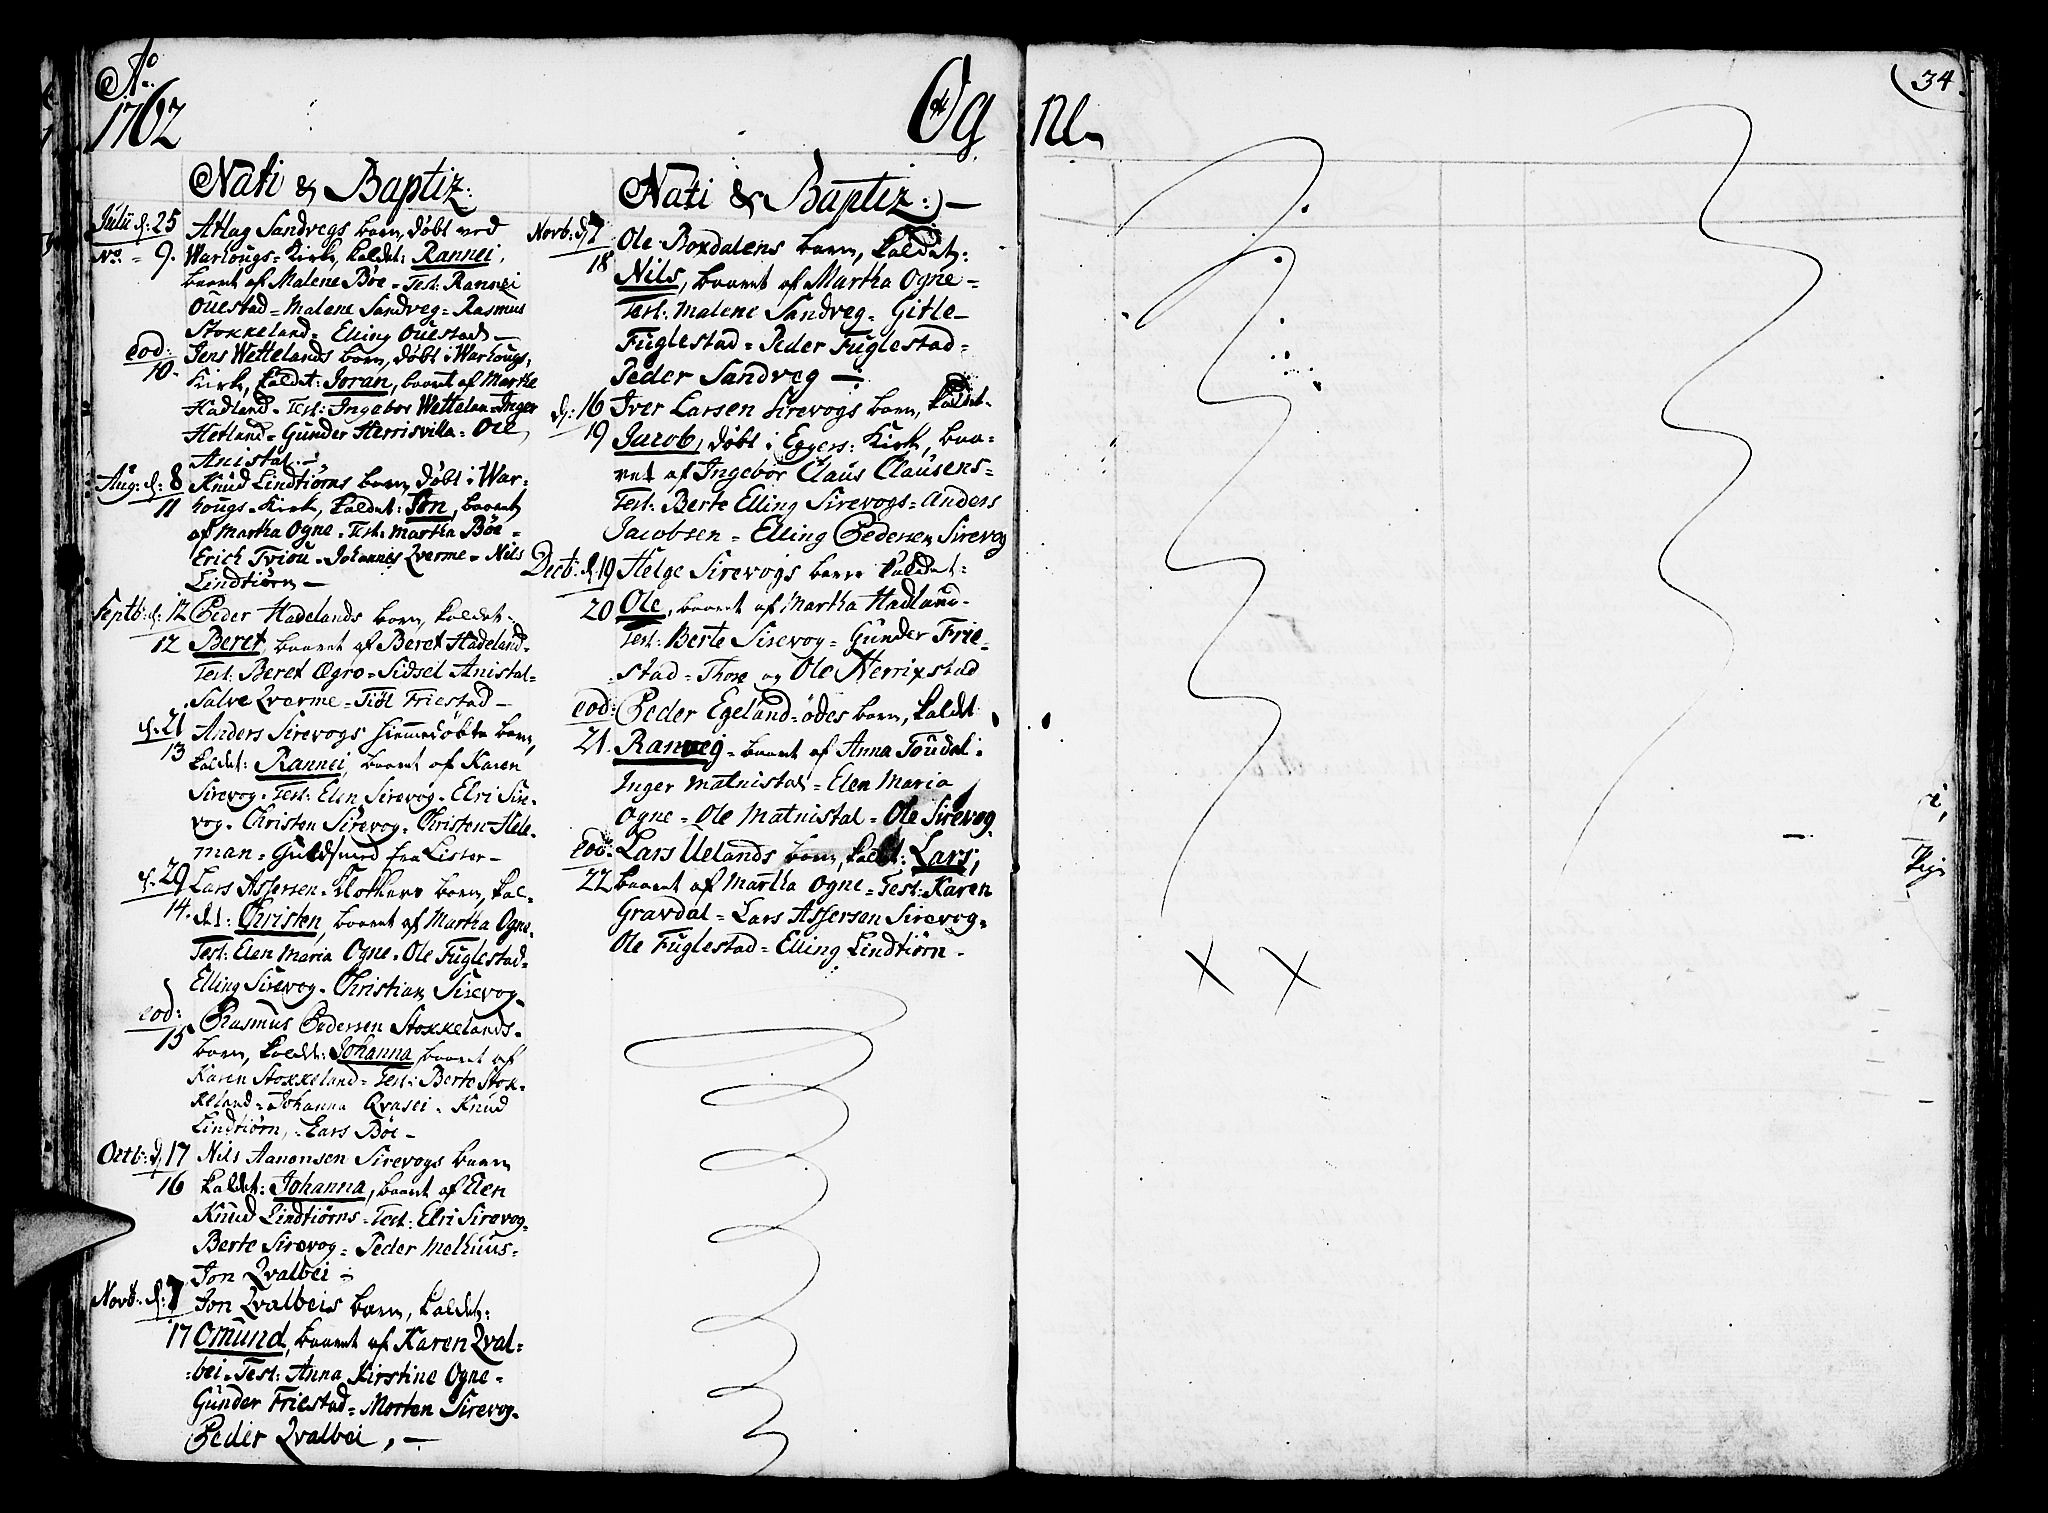 Ao
1762
Og
Ne
34
Nati & Baptiz:
Julii d: 25 Atlag Sandvegs barn, døbt ved
No. - 9. Warhougs-Kirke, kaldet: Rannei,
baaret af Malene Bøe - Test: Rannei
Ouestad = Malene Sandveg = Rasmus
Stokkeland = Elling Ouestad -
eod: Jens Wettelands barn, døbt i Warhougs-
10. Kirke, kaldet: Joran, baaret af Marthe
Hadland - Test: Ingebor Wettelan = Inger
Hetland = Gunder Herrisvilla = Ole
Anistal -
Aug: d: 8 Knud Lindtiørns barn, døbt i War-
11 hougs-Kirke, kaldet: Jon, baaret
af Martha Ogne - Test: Martha Bøe -
Erich Tviou - Johannes Qverme - Nils
Lindtiørn -
Septb: d: 12 Peder Hadelands barn, kaldet
12 Beret, baaret af Beret Hadeland -
Test: Beret Øgro - Sidsel Anistal -
Salve Qverme - Tiøl Friestad -
d: 21 Anders Sirevogs hiemmedøbte barn,
13 kaldet: Rannei, baaret af Karen
Sirevog - Test: Elen Sirevog - Elri Sire-
vog - Christen Sirevog - Christen Hele-
man - Guldsmed fra Lister -
d: 29 Lars Assersen - barn, kal-
14. det: Christen, baaret af Martha Ogne -
Test: Elen Maria Ogne - Ole Fuglestad -
Elling Sirevog - Christian Sirevog -
eod: Rasmus Pedersen Stokkelands -
15 barn, kaldet: Johanna, baaret af
Karen Stokkeland - Test: Berte Stok-
keland - Johanna Qvasei - Knud
Lindtiørn, - Lars Bøe -
Octb: d: 17 Nils Aanensen Sirevogs barn
16 kaldet: Johanna, baaret af Elen
Knud Lindtiørns - Test: Elri Sirevog -
Berte Sirevog = Peder Melhuus -
Jon Qvalbei -
Novb: d: 7 Jon Qvalbeis barn, kaldet:
17 Omund, baaret af Karen Qval-
bei - Test: Anna Kirstine Ogne -
Gunder Friestad = Morten Sirevog -
Peder Qvalbei, -
Nati & Baptiz: -
Novb: d: 7 Ole Boxdalens barn, kaldet:
18 Nils, baaret af Martha Ogne -
Test: Malene Sandveg - Gitle
Fuglestad = Peder Fuglestad -
Peder Sandveg -
d: 16 Iver Larsen Sirevogs barn, kaldet
19 Jacob, døbt i Eggers: Kirke, baa-
ret af Ingebor Claus Clausens -
Test: Berte Elling Sirevogs = Anders
Jacobsen = Elling Pedersen Sirevog
Decb: d: 19 Helge Sirevogs barn kaldet:
20 Ole, baaret af Martha Hadland -
Test: Berte Sirevog - Gunder Frie-
stad - Thore og Ole Herrixstad
eod: Peder Egeland-ødes barn, kaldt
21. Ranveig - baaret af Anna Toudal -
Inger Matnistad = Elen Maria
Ogne - Ole Matnistal - Ole Sirevog.
eod: Lars Uelands barn, kaldet: Lars,
22 baaret af Martha Ogne = Test: Karen
Gravdal = Lars Assersen Sirevog -
Ole Fuglestad = Elling Lindtiørn -